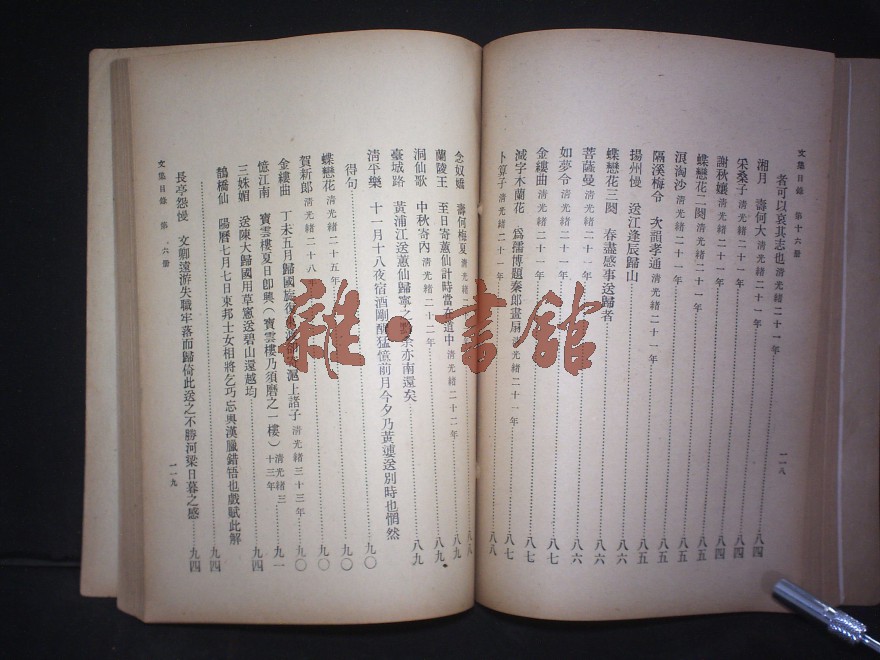 文集目錄 第十六册
一一八
者可以哀其志也 清光緒二十一年
湘月 壽何大 清光緒二十一年 八四
采桑子 清光緒二十一年 八四
謝秋孃 清光緒二十一年 八四
蝶戀花二闋 清光緒二十一年 八五
浪淘沙 清光緒二十一年 八五
隔溪梅令 次韻孝通 清光緒二十一年 八五
揚州慢 送江逢辰歸山 八六
蝶戀花三闋 春盡感事送歸者 八六
菩薩曼 清光緒二十一年 八六
如夢令 清光緒二十一年 八六
金縷曲 清光緒二十一年 八七
減字木蘭花 爲孺博題秦郎畫扇 清光緒二十一年 八七
卜算子 清光緒二十一年 八八
念奴嬌 壽何梅夏 清光緒 八八
蘭陵王 至日寄蕙仙計時當在道中 清光緒二十二年 八九
洞仙歌 中秋寄內 清光緒二十二年 八九
臺城路 黃浦江送蕙仙歸寧之 余亦南還矣 八九
清平樂 十一月十八夜宿酒剛醒猛憶前月今夕乃黃 送別時也惘然
得句 九〇
蝶戀花 清光緒二十五年 九〇
賀新郎 清光緒二十八年 九〇
金縷曲 丁未五月歸國旋復 滬上諸子 清光緒三十三年 九〇
憶江南 寶雲樓夏日卽興（寶雲樓乃須磨之一樓） 清光緒三十三年 九一
三姝媚 送陳大歸國用草窻送碧山還越均 九四
鵲橋仙 陽曆七月七日東邦士女相將乞巧忘與漢臘錯悟也戲賦此解
九四
長亭怨慢 文卿遠游失職牢落而歸倚此送之不勝河梁日暮之感 九四
文集目錄 第 六册
一一九
雜·書館